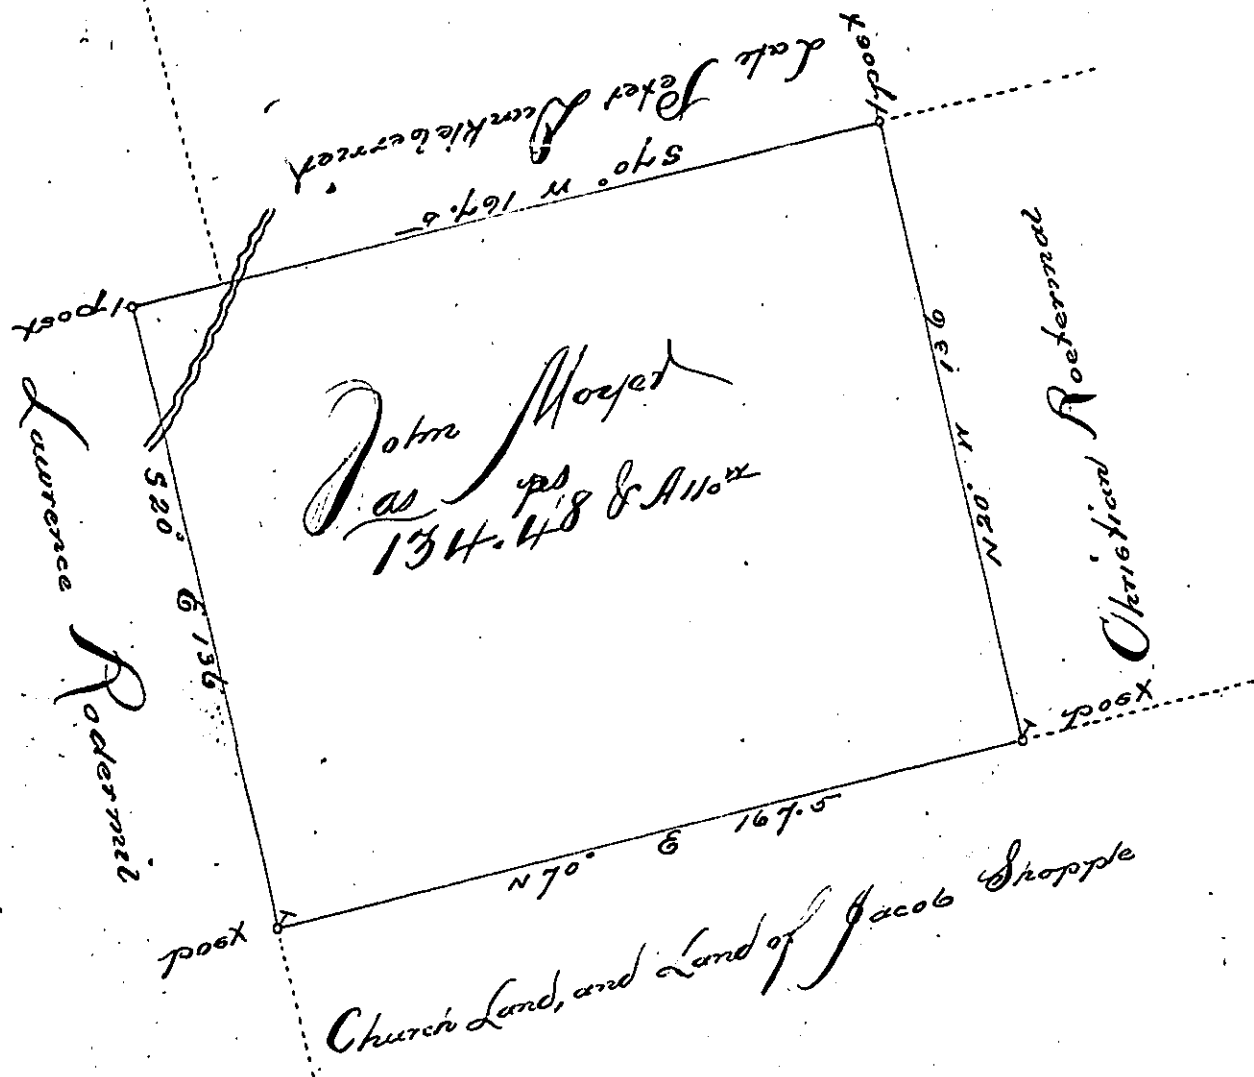 Late Peter Dunkleberrier
S 70° W 167.5
post
post
post
post
Lawrence Rodermil
S 20° E 136
John Moyer
as ps
134.48 & Allo.ce
N 20° W 136
Christian Roeterman
N 70° E 167.5
Church Land, and Land of Jacob Shopple